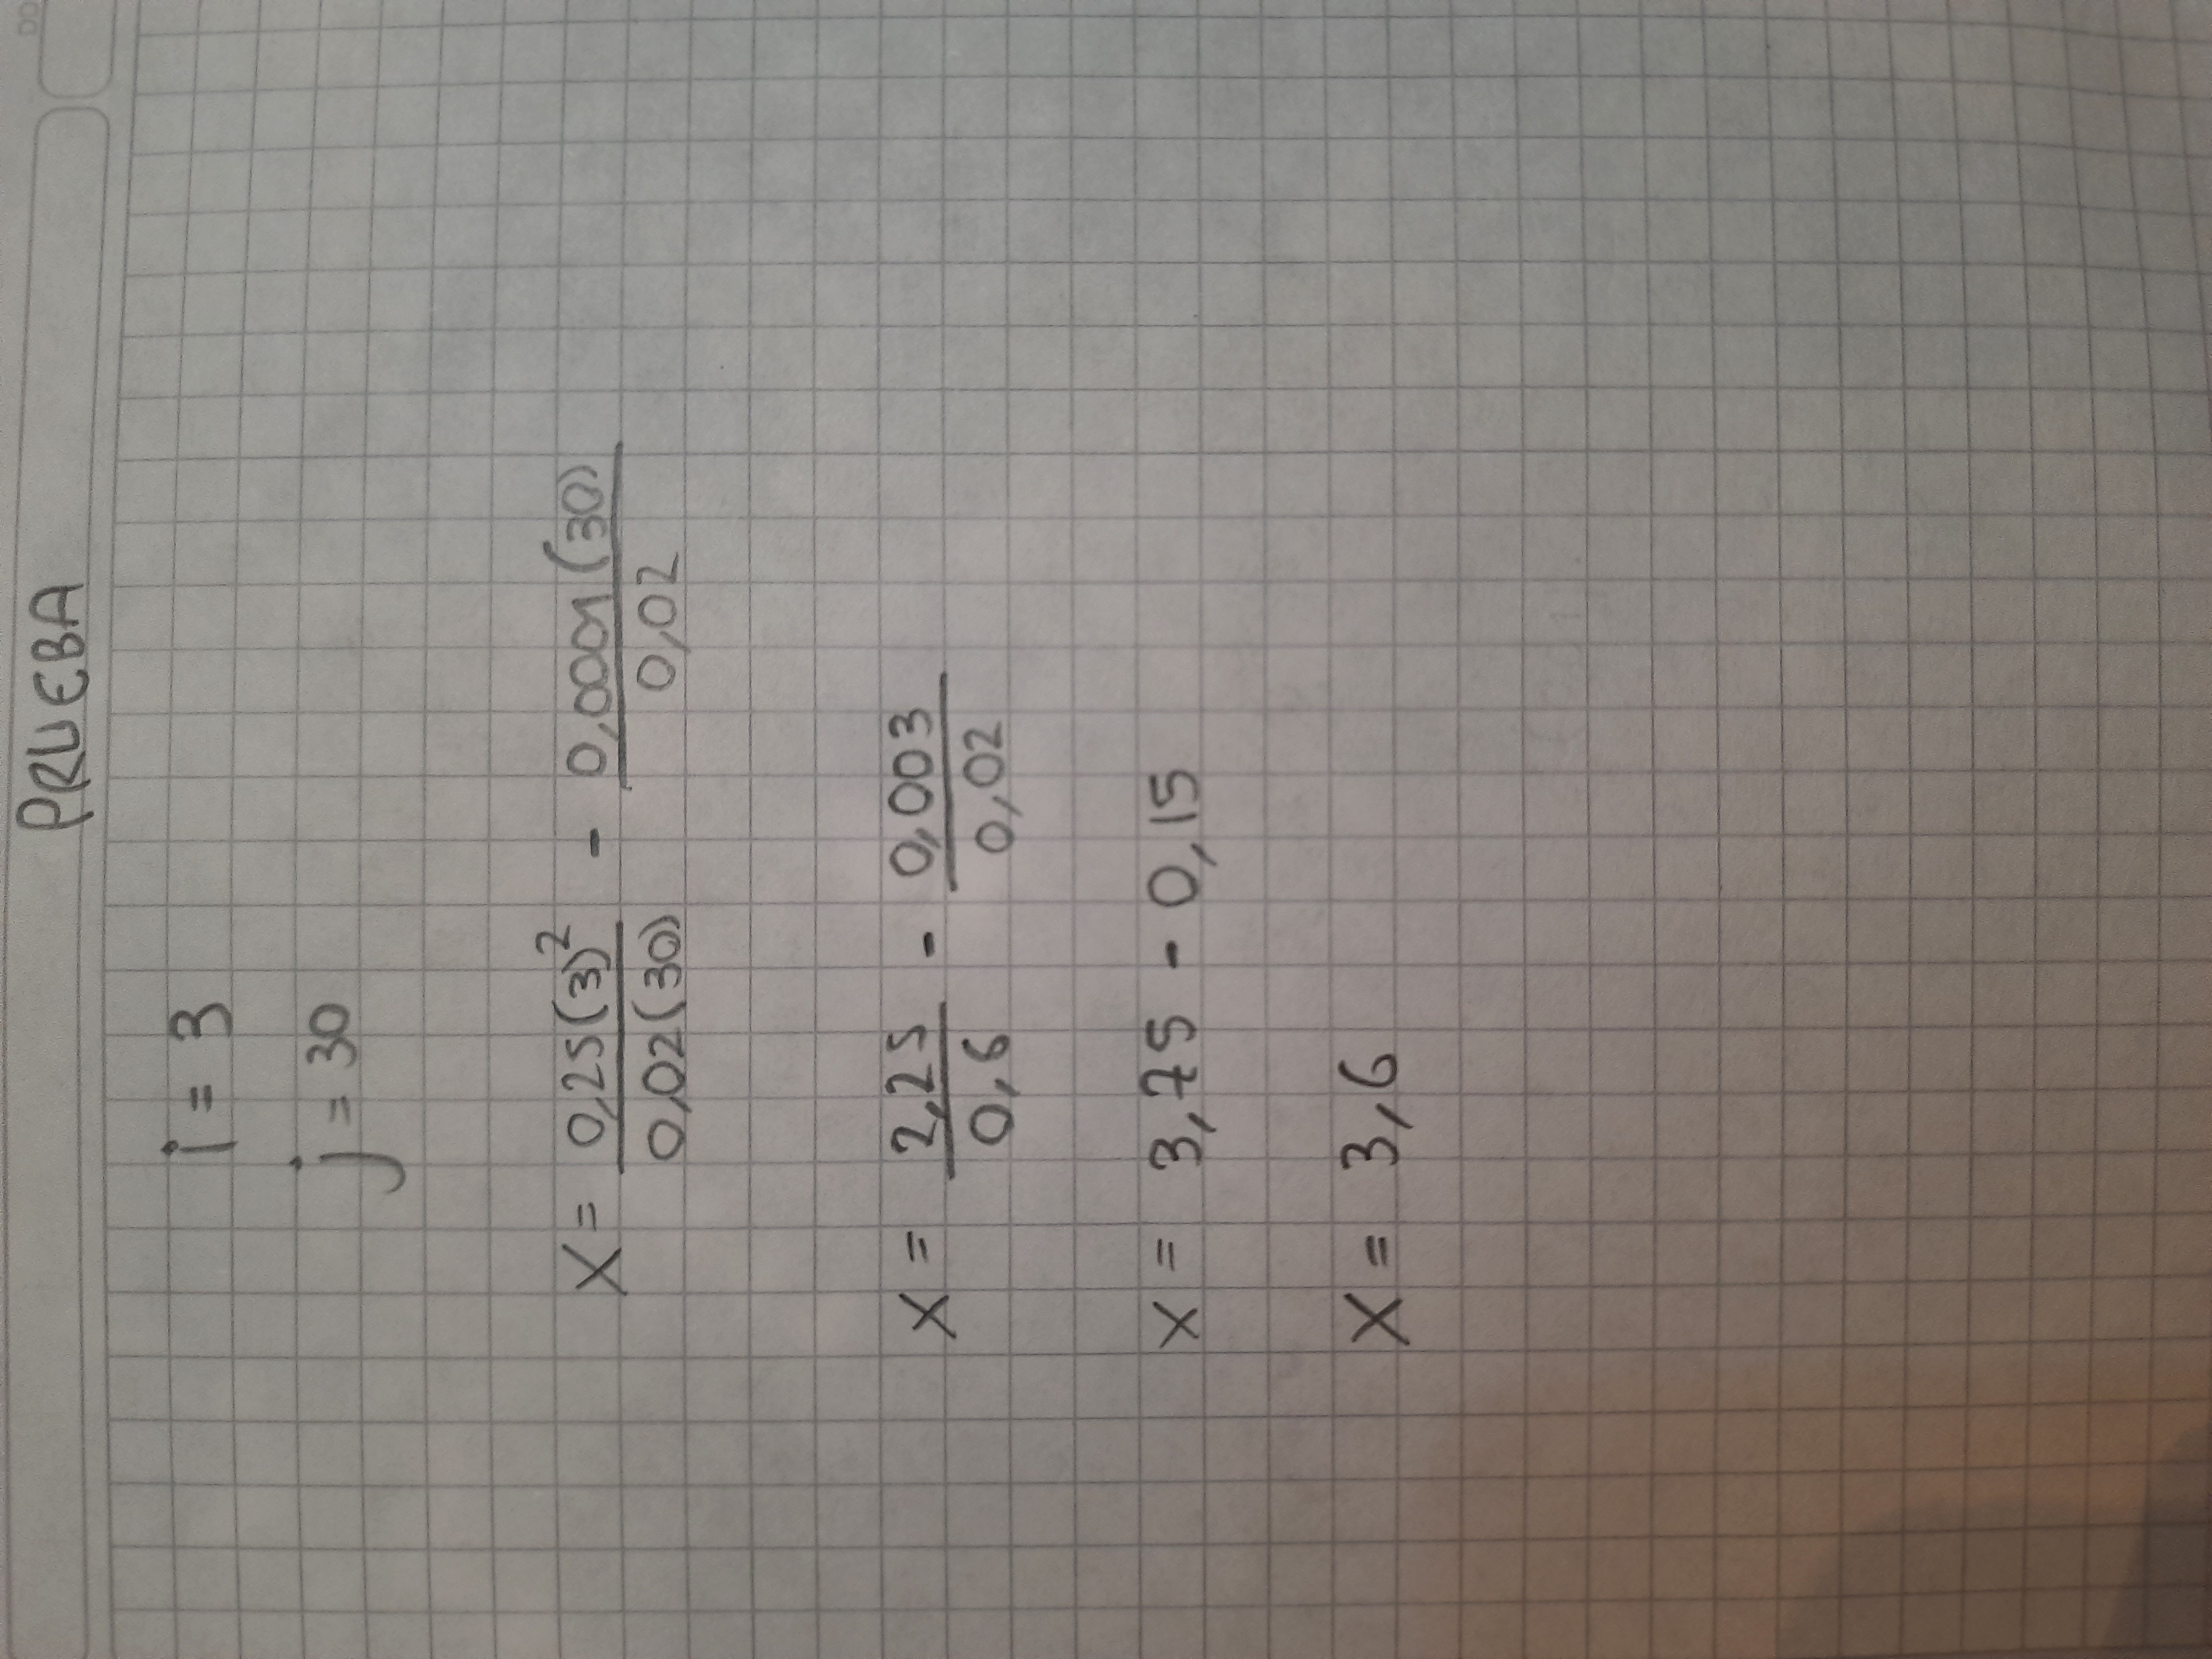 PRUEBA
i = 3
j = 30
X = 0,25(3)² / 0,02(30) - 0,0001(30) / 0,02
X = 2,25 / 0,6 - 0,003 / 0,02
X = 3,75 - 0,15
X = 3,6